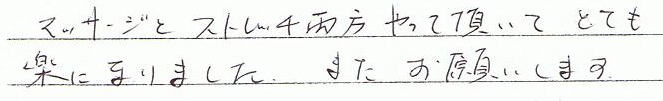 マッサージと ストレッチ両方 やって頂いて とても
楽になりました。 また お願いします。